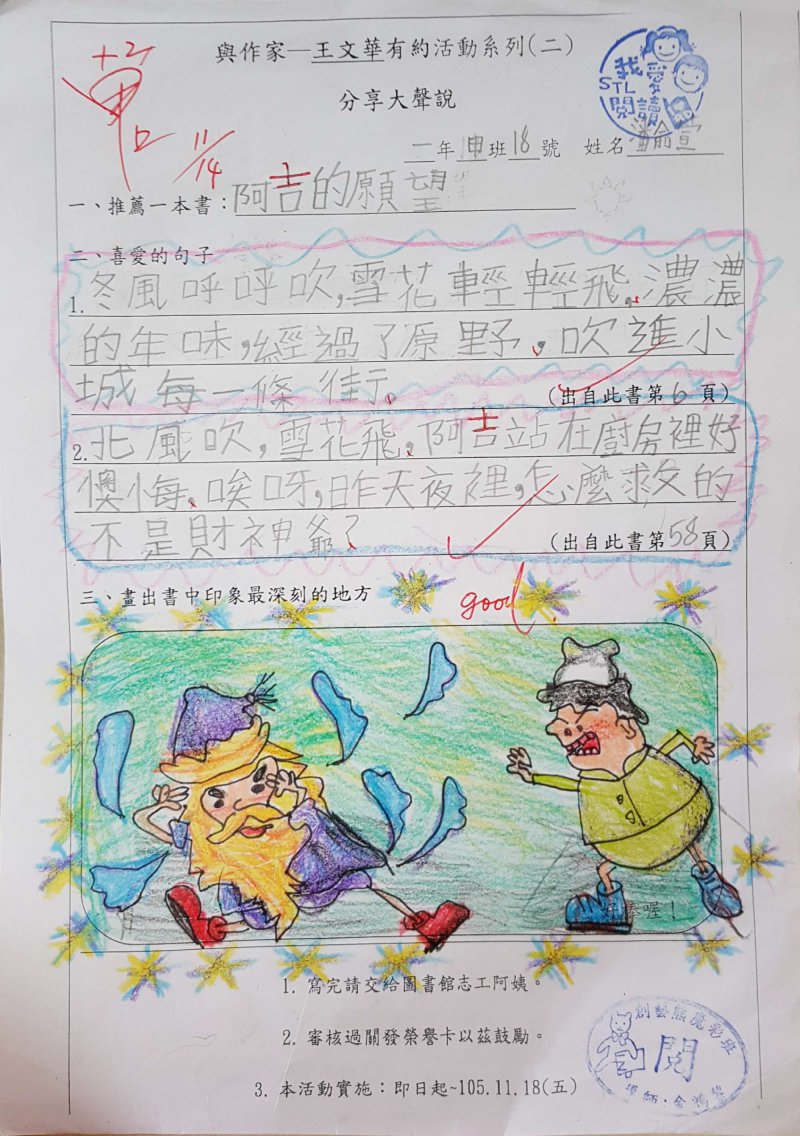 與作家—王文華有約活動系列(二)
分享大聲說
我愛
STL
閱讀
+2
11/14
二年坤班18號 姓名潘俞萱
一、推薦一本書：阿吉的願望
二、喜愛的句子
1.冬風呼呼吹,雪花輕輕飛,濃濃
的年味,經過了原野,吹進小
城每一條街。
(出自此書第6頁)
2.北風吹,雪花飛,阿吉站在廚房裡好
懊悔,唉呀,昨天夜裡,怎麼救的
不是財神爺?
(出自此書第58頁)
三、畫出書中印象最深刻的地方
good.
好棒喔！
1. 寫完請交給圖書館志工阿姨。
2. 審核過關發榮譽卡以茲鼓勵。
3. 本活動實施：即日起~105.11.18(五)
創藝熊魔彩班
閱